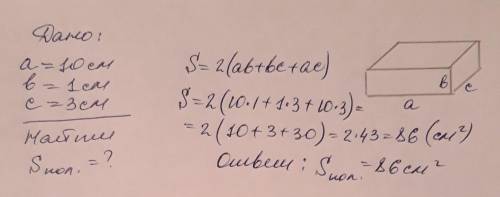 Дано:
a = 10 см
в = 1 см
c = 3 см
Найти
Sпол. = ?
S = 2(ab+bc+ac)
S = 2(10·1+1·3+10·3)=
= 2(10+3+30) = 2·43 = 86 (см²)
Ответ: Sпол. = 86 см²
в
c
a